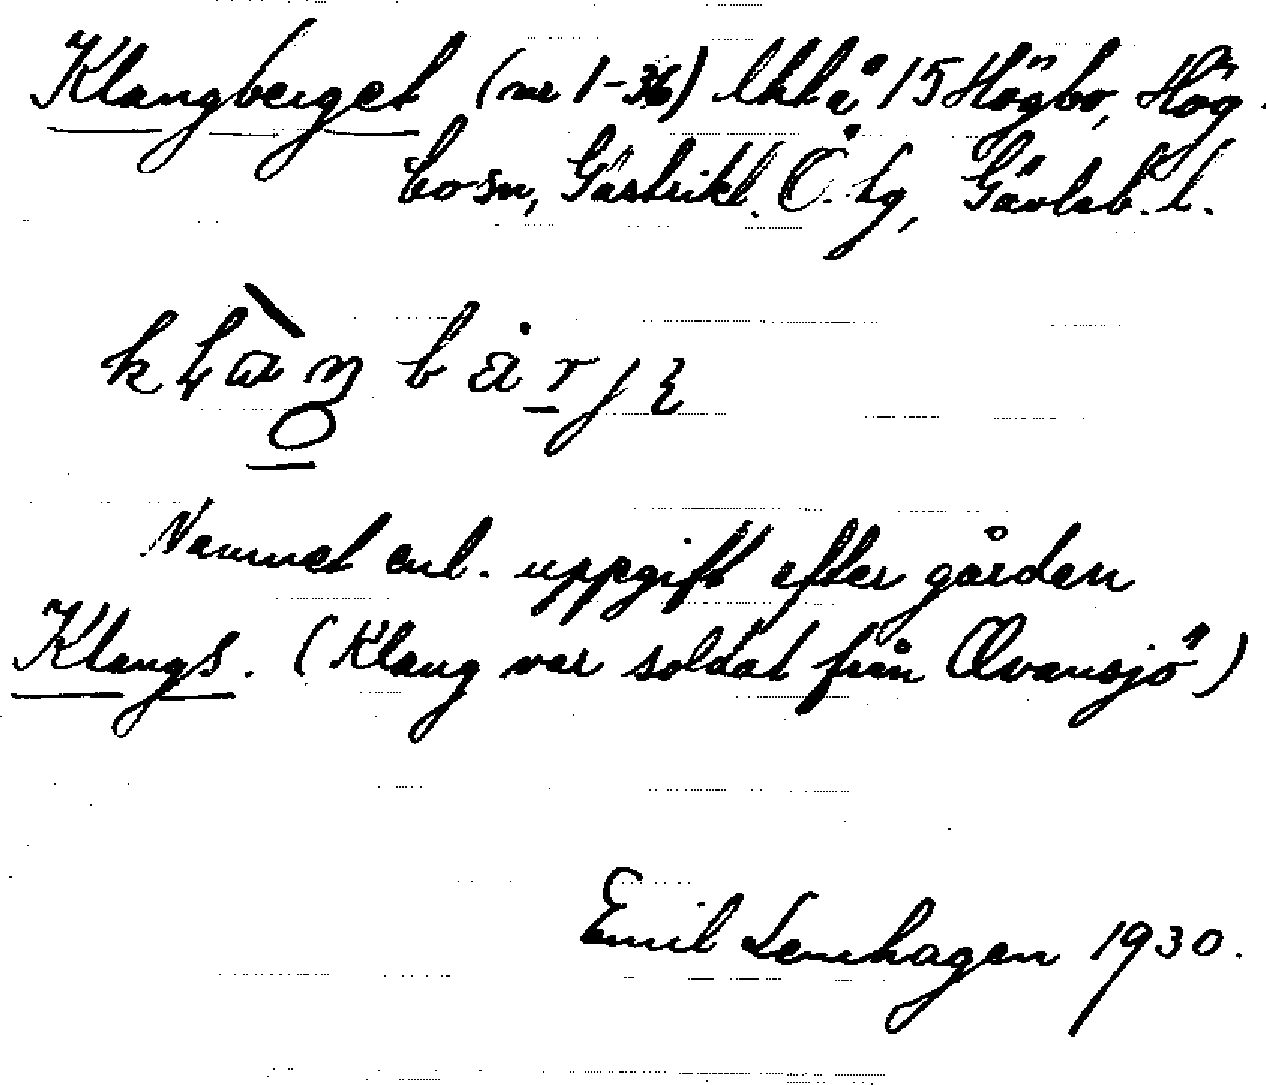 Klangberget (nr 1-36) Utkå, 15 Högbo, Hög-
bo sn, Gästrikl. Ö. tg, Gävleb. l.
klàŋbärjε
Namnet enl. uppgift efter gården
Klangs. (Klang var soldat från Ovansjö")
Emil Lenhagen 1930.